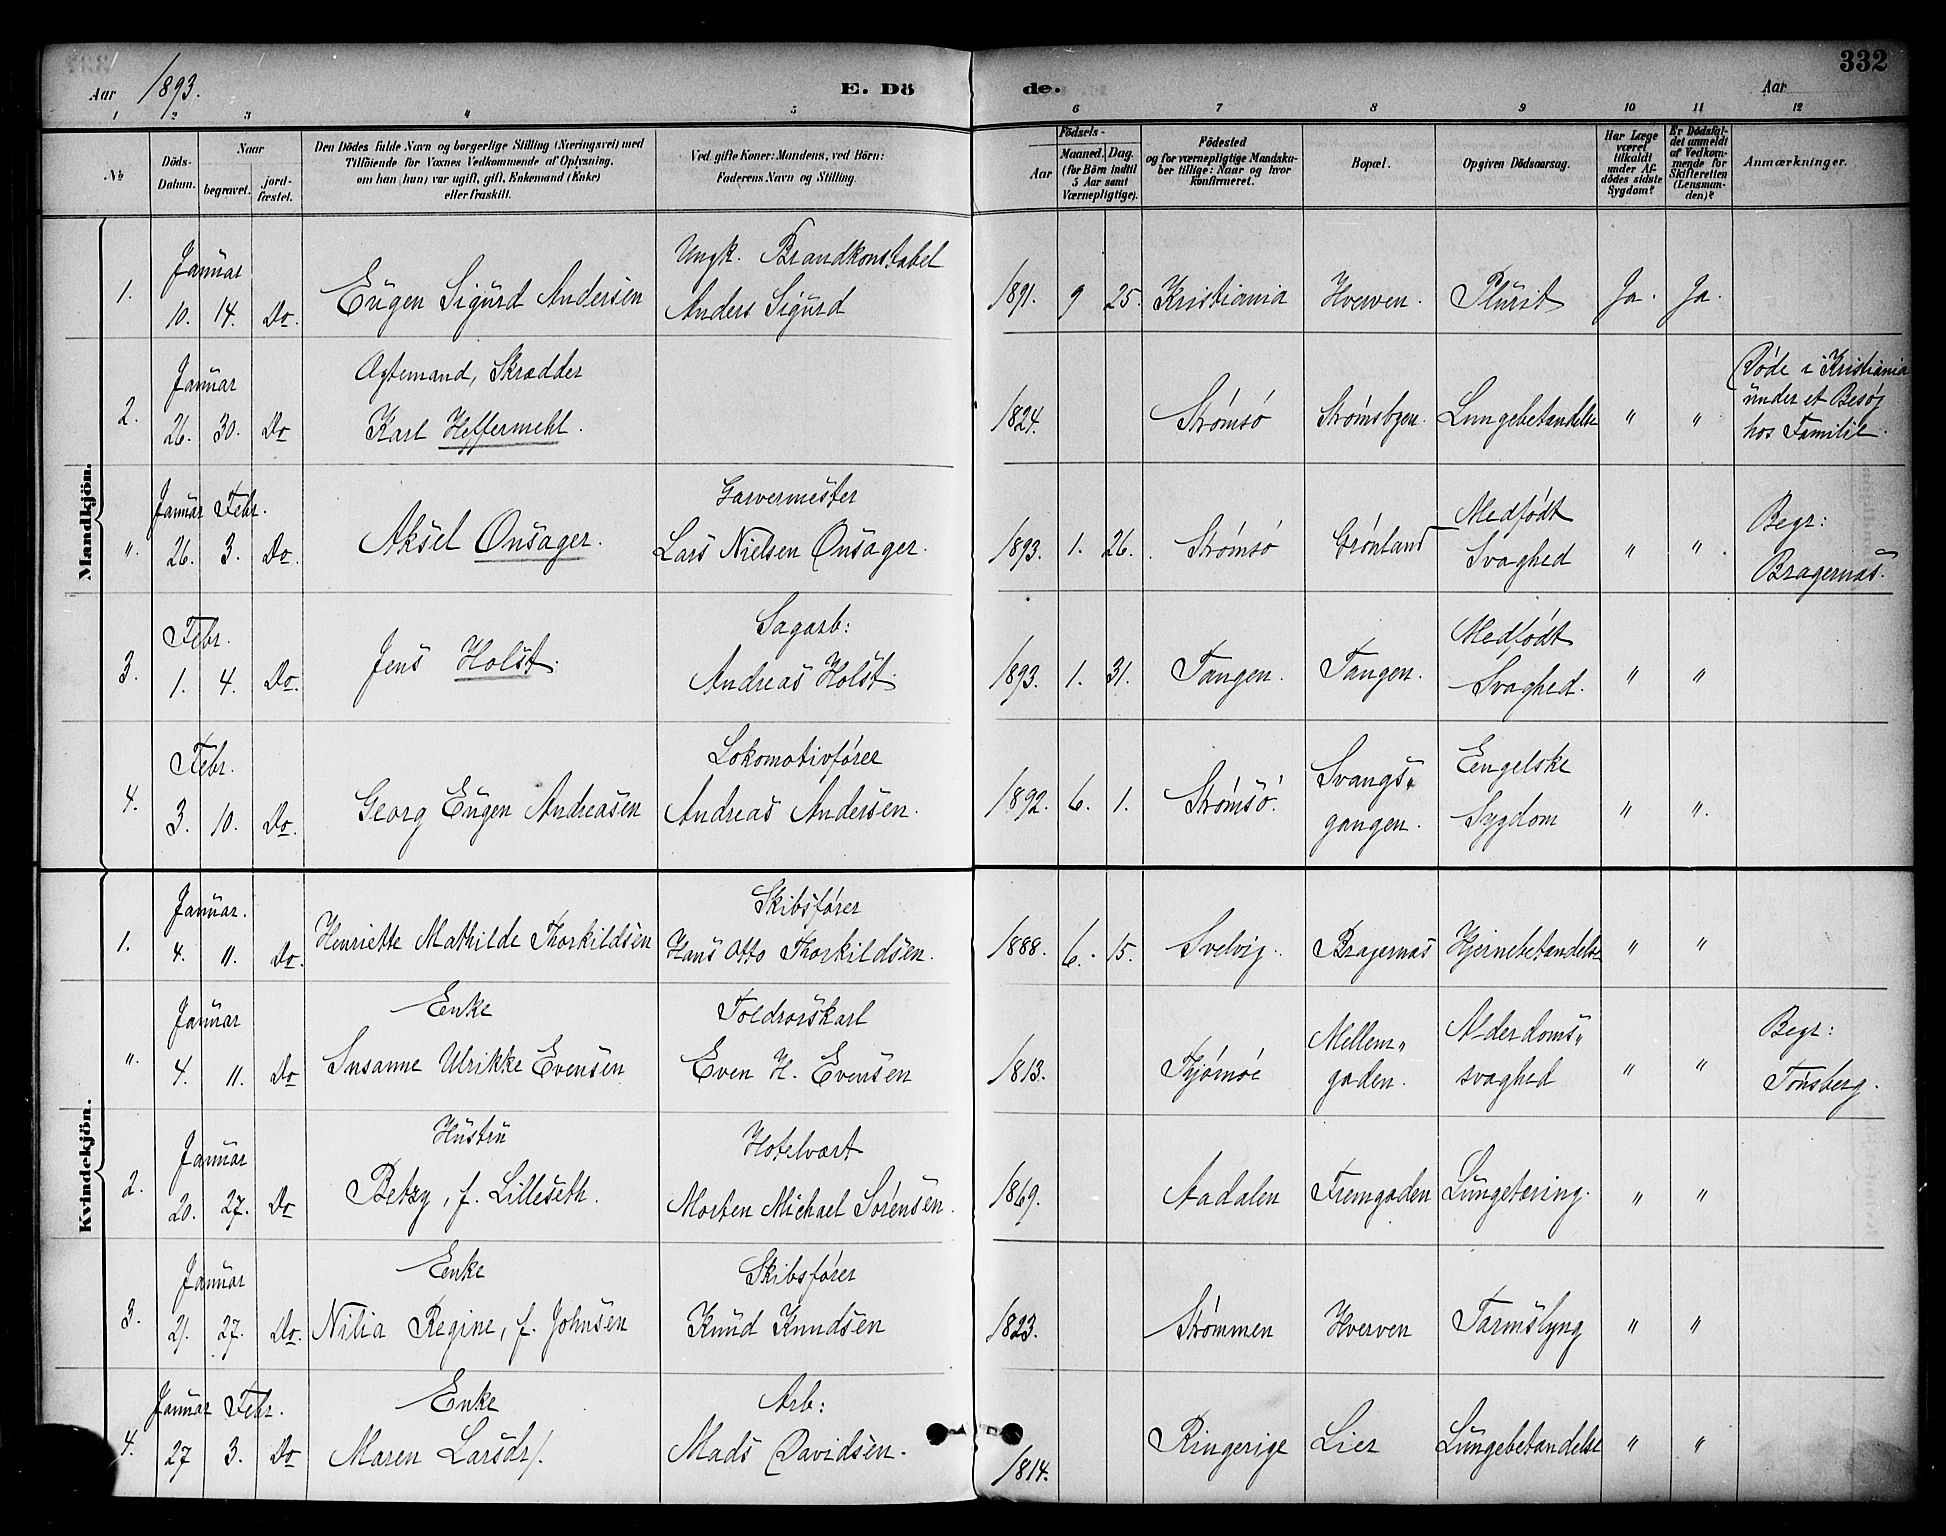 332
Aar 1893.
E. Dö
de.
Aar
1 2 3 4 5 6 7 8 9 10 11 12
№
Döds-Datum.
Naar
begravet.
jord-fæstet.
Den Dödes fulde Navn og borgerlige Stilling (Næringsvei) med
Tilföiende for Voxnes Vedkommende af Oplysning,
om han (hun) var ugift, gift, Enkemand (Enke)
eller fraskilt.
Ved gifte Koner: Mandens, ved Börn:
Faderens Navn og Stilling.
Födsels-
Aar
Maaned. Dag.
(for Börn indtil
5 Aar samt
Værnepligtige).
Födested
og for værnepligtige Mandska-
ber tillige: Naar og hvor
konfirmeret.
Bopæl.
Opgiven Dödsaarsag.
Har Læge
været
tilkaldt
under Af-
dödes sidste
Sygdom?
Er Dödsfal-
det anmeldt
af Vedkom-
mende for
Skifteretten
(Lensman-
den)?
Anmærkninger.
Mandkjön.
Januar
Ungk. Brandkonstabel
1. 10. 14. Do. Eugen Sigurd Andersen Anders Sigurd 1891. 9 25. Kristiania Hverven. Plurit Ja. Ja.
Januar
Ægtemand, Skrædder
2. 26. 30. Do Karl Heffermehl. 1824. Strømsö Strømsbyen. Lungebetændelse " "
Døde i Kristiania
under et Besøg
hos Familie.
Januar Febr.
Garvermester
Medfödt
Begr:
". 26. 3. Do. Aksel Onsager. Lars Nielsen Onsager. 1893. 1. 26. Strømsö Grönland Svaghed " " Bragernæs.
Febr.
Sagarb:
Medfödt
3. 1. 4. Do. Jens Holst. Andreas Holst 1893. 1. 31. Tangen. Tangen. Svaghed. " "
Febr.
Lokomotivförer
Svangs"
Eengelske
4. 3. 10. Do. Georg Eugen Andreasen Andreas Andersen. 1892. 6. 1. Strømsö. gangen. Sygdom " ".
Kvindekjön.
Januar.
Skibsförer
1. 4. 11. Do. Henriette Mathilde Thorkildsen Hans Otto Thorkildsen. 1888. 6. 15. Svelvig. Bragernæs Hjernebetændelse " "
Januar
Enke
Toldrorskarl
Mellem"
Alderdoms"
Begr:
". 4. 11. Do Susanne Ulrikke Evensen Even H. Evensen 1813. Tjømöe gaden. svaghed " " Tönsberg.
Januar
Hustru
Hotelvært
2. 20. 27. Do Betzy, f. Lilleseth. Morten Michael Sörensen. 1869. Aadalen Fremgaden Lungetæring. " "
Januar
Enke
Skibsförer
3. 21. 27. Do. Nilia Regine, f. Johnsen Knud Knudsen 1823. Strømmen Hverven Tarmslyng " "
Januar Febr.
Enke
Arb:
4. 27 3. Do Maren Larsdr/. Mads Davidsen. 1814. Ringerige Lier Lungebetændelse " "